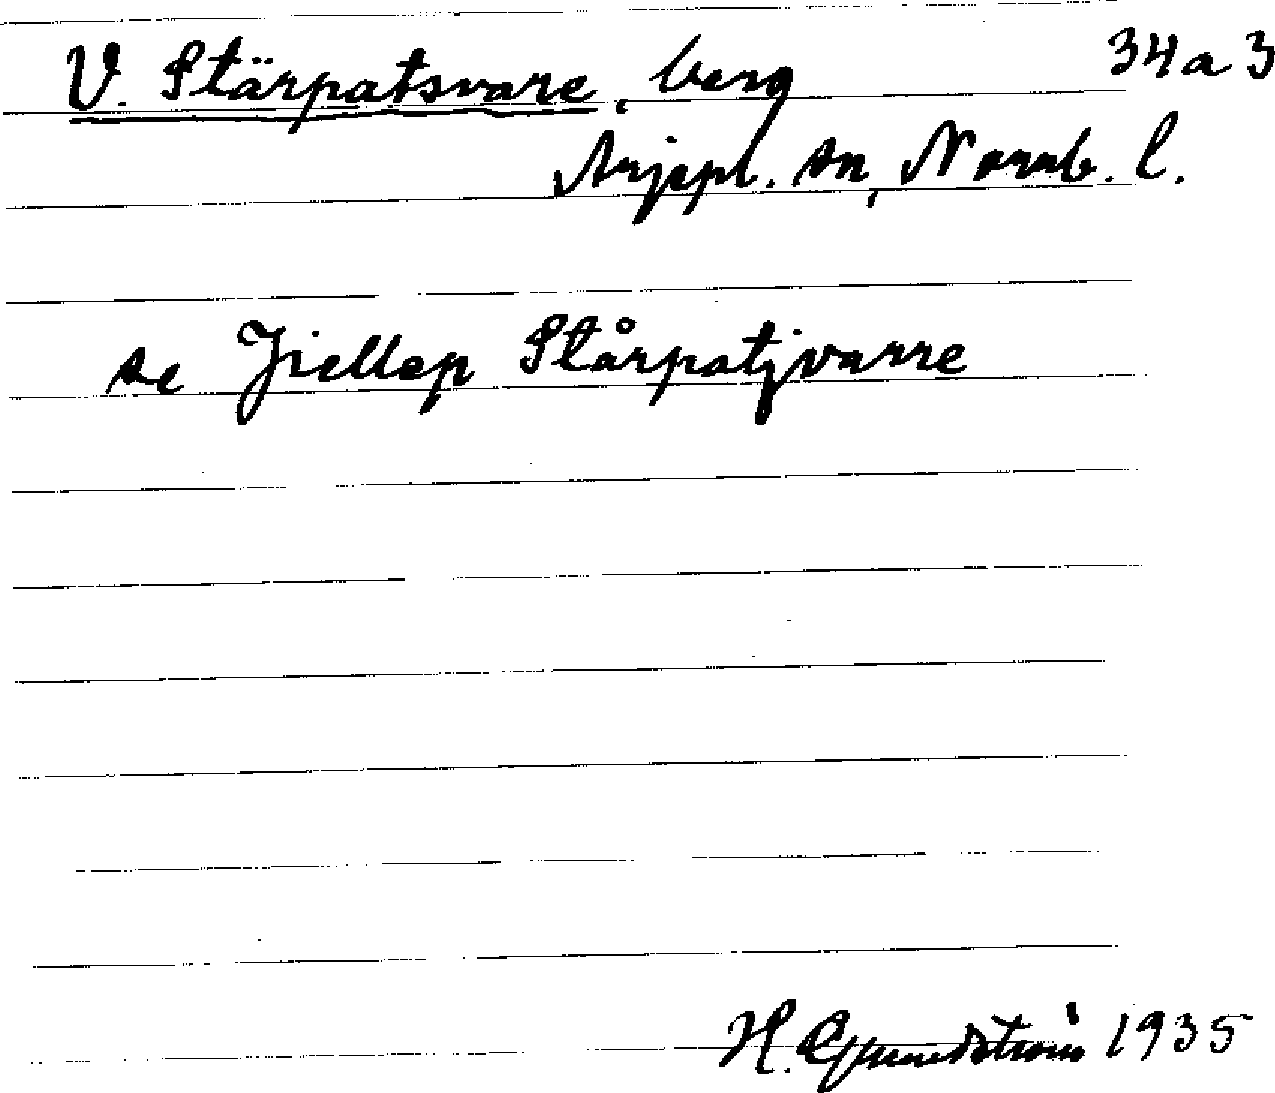 V. Stärpatsvare, berg 34 a 3
Arjepl. sn, Norrb. l.
se Jiellep Stårpatjvarre
H. Grundström 1935